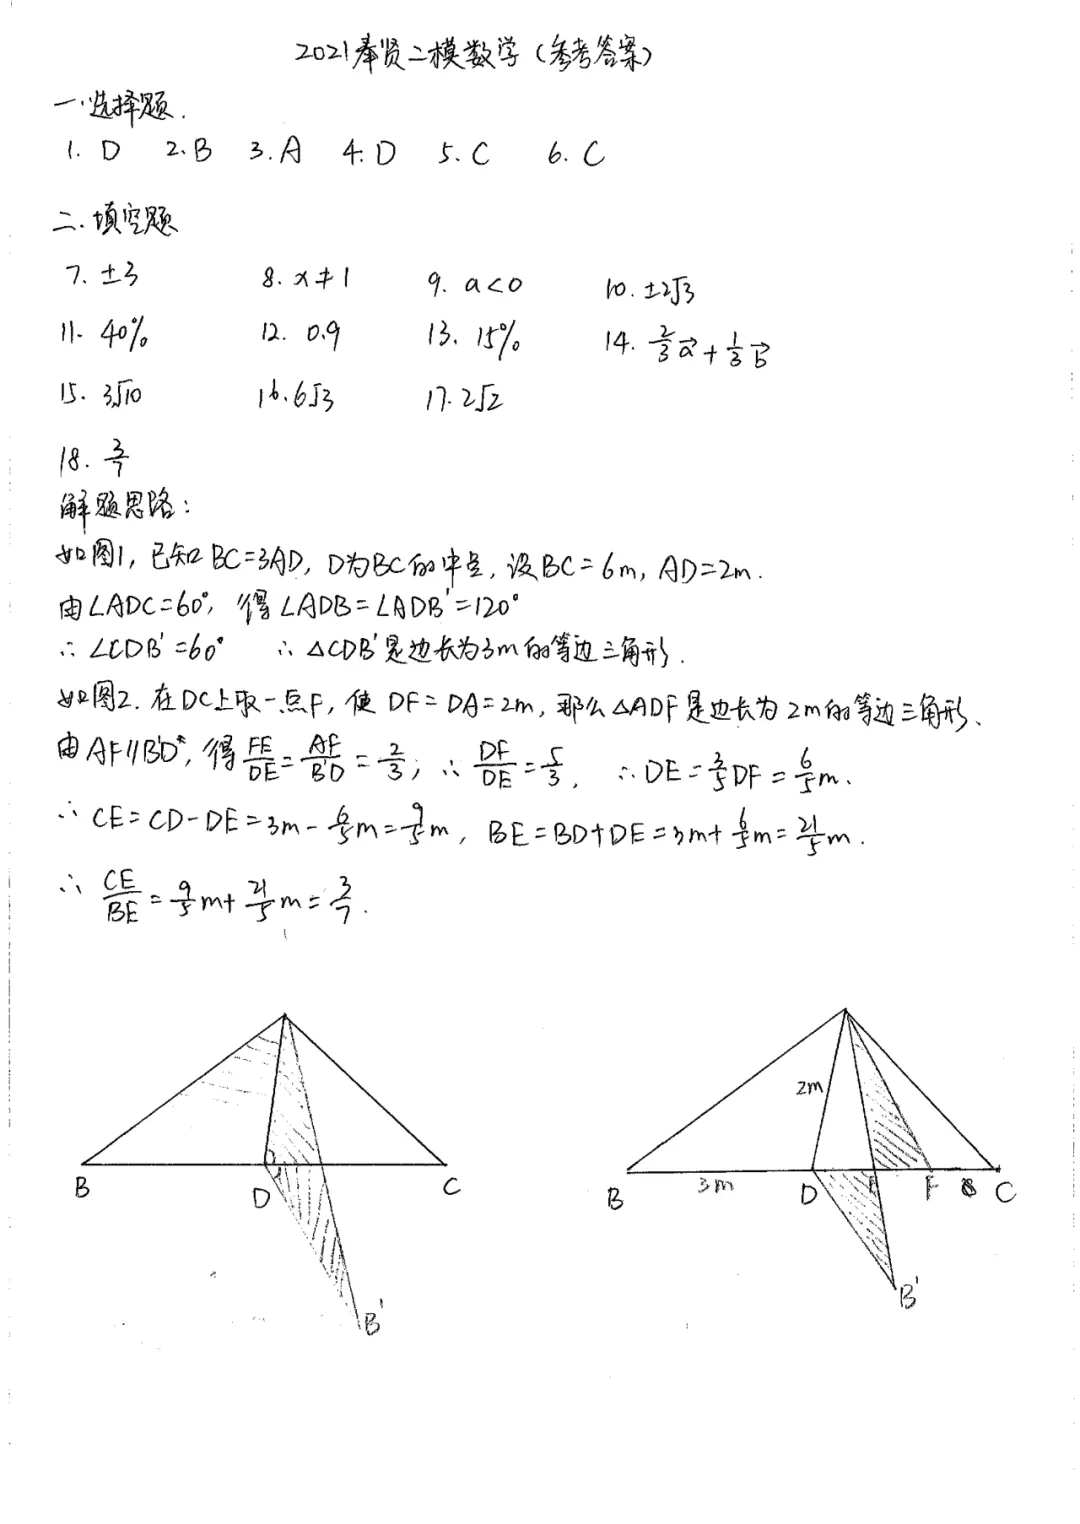 2021奉贤二模数学（参考答案）
一.选择题.
1. D 2. B 3. A 4. D 5. C 6. C
二.填空题
7. ±3 8. x≠1 9. a<0 10. ±2√3
11. 40% 12. 0.9 13. 15% 14. 2/3 a⃗ + 1/3 b⃗
15. 3√10 16. 6√3 17. 2√2
18. 3/7
解题思路：
如图1, 已知BC=3AD, D为BC的中点, 设BC=6m, AD=2m.
由∠ADC=60°, 得∠ADB=∠ADB'=120°
∴∠CDB'=60° ∴△CDB'是边长为3m的等边三角形.
如图2. 在DC上取一点F, 使DF=DA=2m, 那么△ADF是边长为2m的等边三角形、
由AF∥B'D, 得FE/DE=AF/B'D=2/3; ∴DF/DE=5/3, ∴DE=3/5DF=6/5m.
∴CE=CD-DE=3m-6/5m=9/5m, BE=BD+DE=3m+6/5m=21/5m.
∴CE/BE=9/5m+21/5m=3/7.
B D C B'
2m
B 3m D E F C
B'